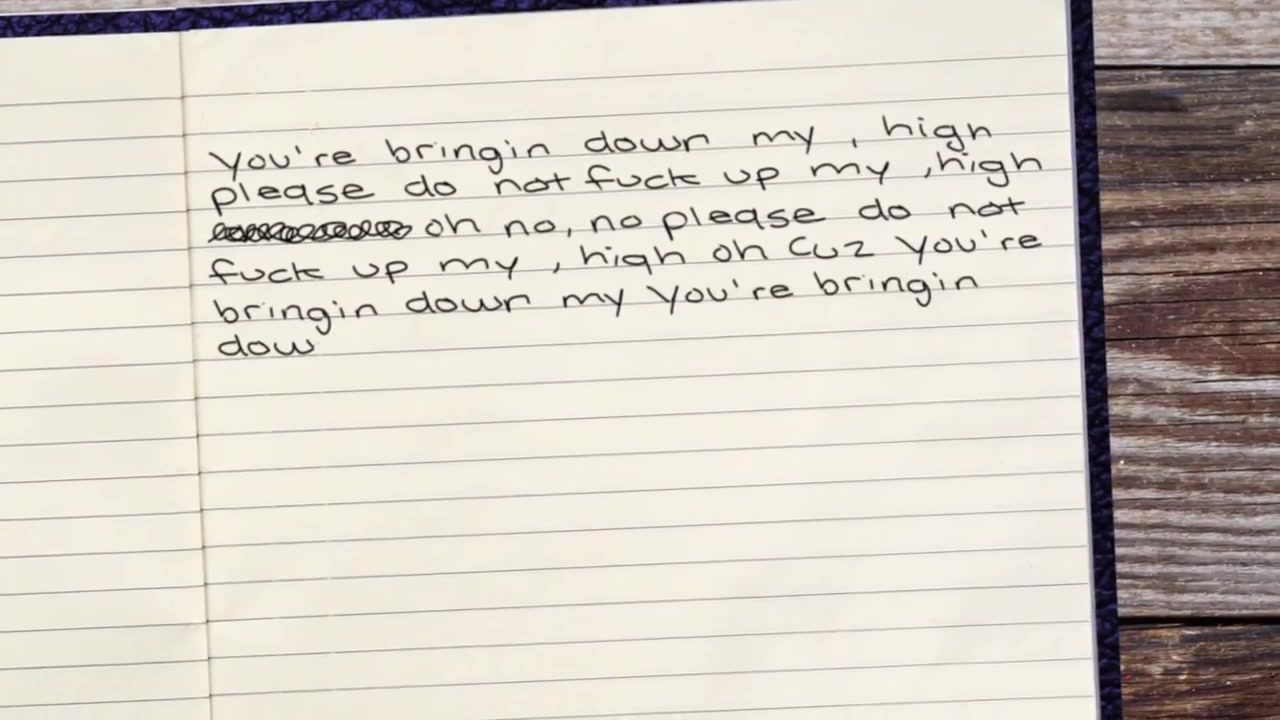 You're bringin down my , high
please do not fuck up my , high
oh no, no please do not
fuck up my , high oh cuz you're
bringin down my you're bringin
dow